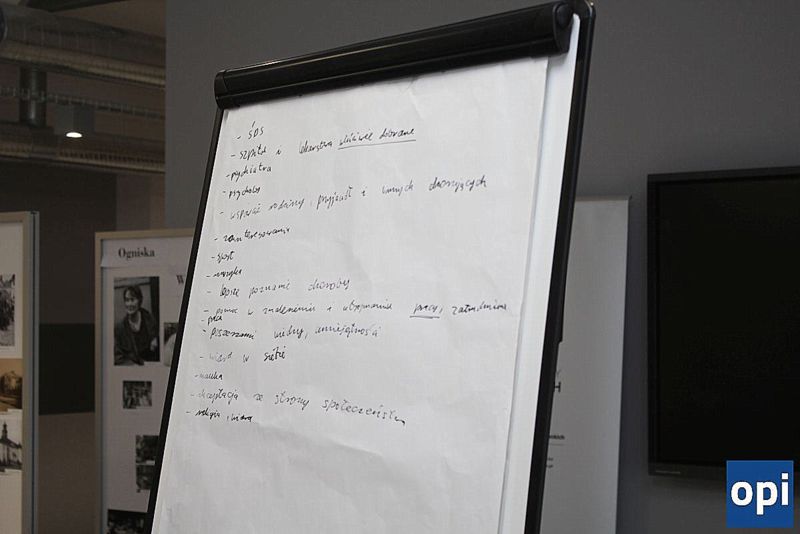 - ŚDS
- szpital i lekarstwa właściwie dobrane
- psychiatra
- psycholog
- wsparcie rodziny, przyjaciół i innych chorujących
- zainteresowania
- sport
- muzyka
- lepsze poznanie choroby
- pomoc w znalezieniu i utrzymaniu pracy, zatrudnienia
- praca
- poszerzanie wiedzy, umiejętności
- wiara w siebie
- nauka
- akceptacja ze strony społeczeństwa
- religia i wiara
Ogniska
W
opi